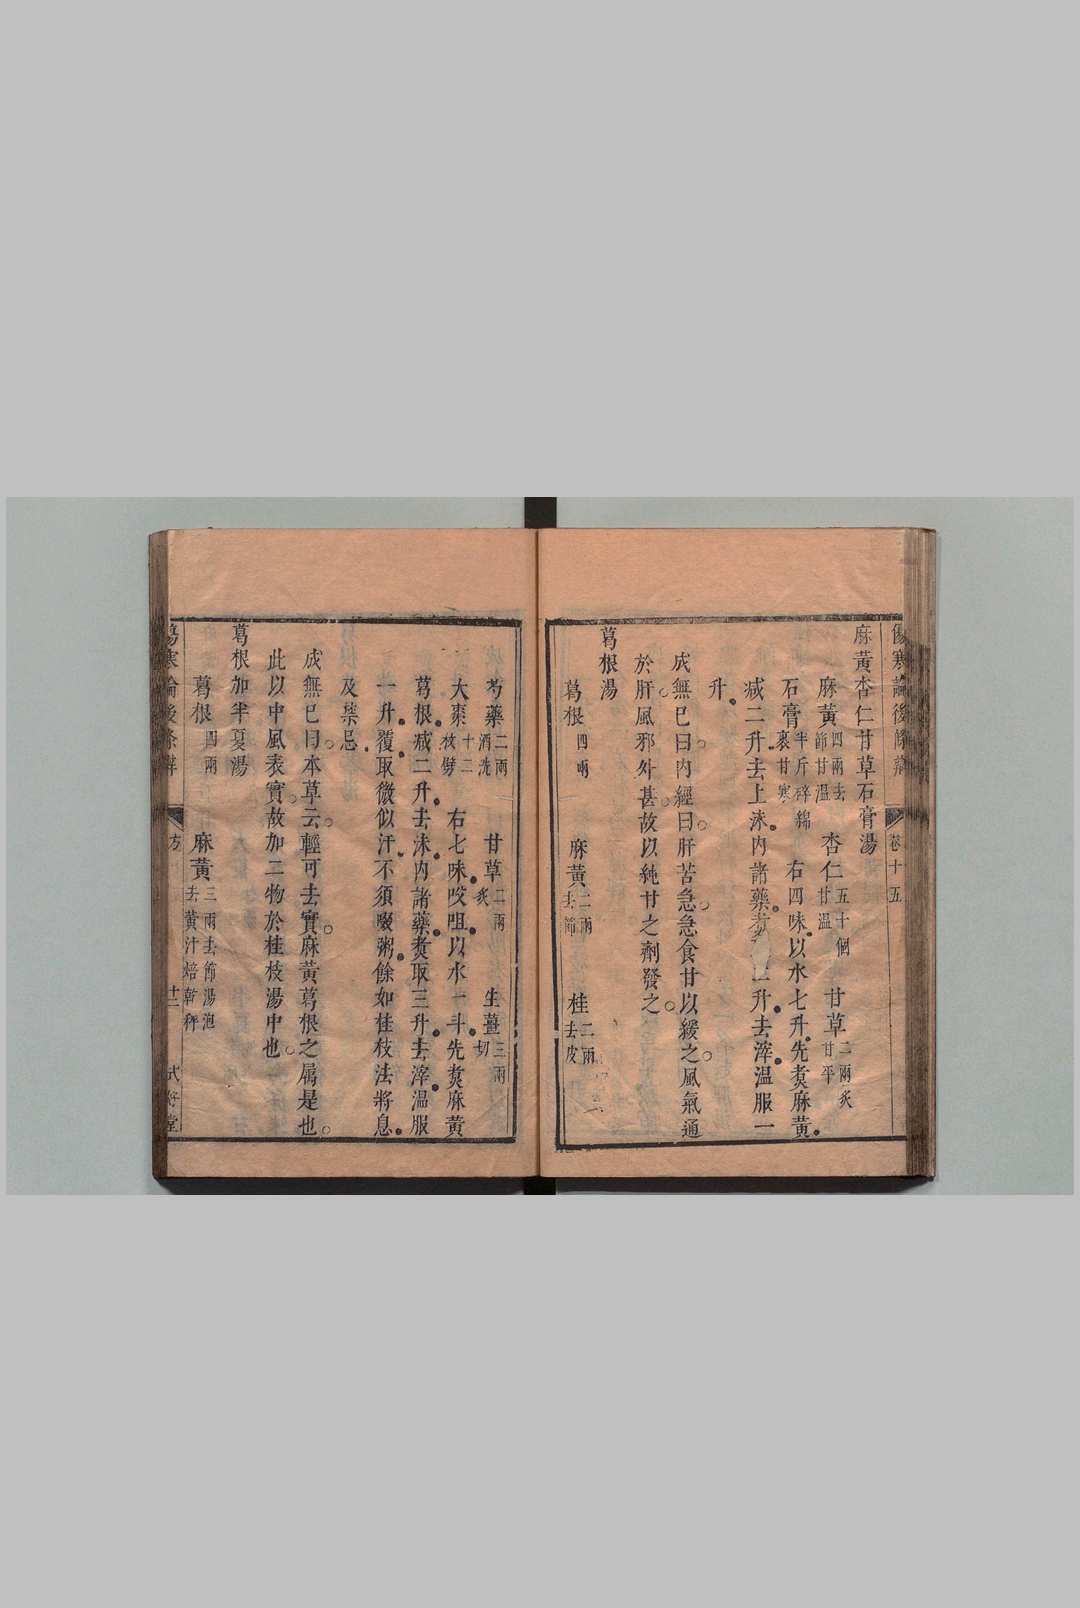 傷寒論後條辨 卷十五
麻黃杏仁甘草石膏湯
麻黃四兩去節甘溫 杏仁五十個甘溫 甘草二兩炙甘平
石膏半斤碎綿裹甘寒 右四味以水七升先煑麻黃
減二升去上沫內諸藥煑 二升去滓溫服一
升
成無已曰內經曰肝苦急急食甘以緩之風氣通
於肝風邪外甚故以純甘之劑發之
葛根湯
葛根四兩 麻黃二兩去節 桂二兩去皮
芍藥二兩酒洗 甘草二兩炙 生薑三兩切
大棗十二枚劈 右七味㕮咀以水一斗先煑麻黃
葛根減二升去沫內諸藥煑取三升去滓溫服
一升覆取微似汗不須啜粥餘如桂枝法將息
及禁忌
成無已曰本草云輕可去實麻黃葛根之屬是也
此以中風表實故加二物於桂枝湯中也
葛根加半夏湯
葛根四兩 麻黃三兩去節湯泡去黃汁焙乾秤
傷寒論後條辨 方 十二 式好堂